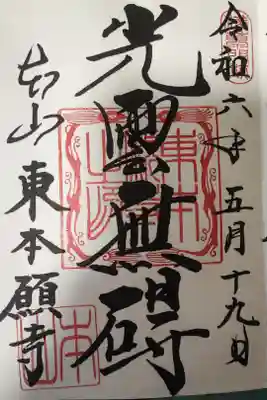 令和六年 五月十九日
光雲無碍
本山 東本願寺